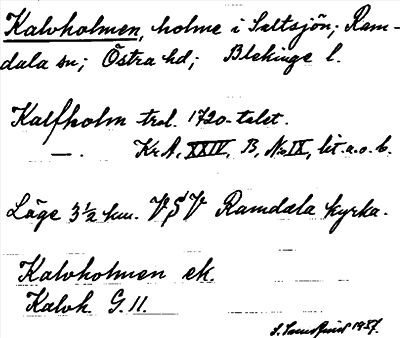 Kalvholmen, holme i Saltsjön; Ram-
dala sn; Östra hd; Blekinge l.
Kalfholm trol. 1720-talet.
— . Kr.A, XXIV, B, No IX, lit. a.o.b.
Läge 3½ km. VSV Ramdala kyrka.
Kalvholmen ek.
Kalvh. G. 11.
1937.